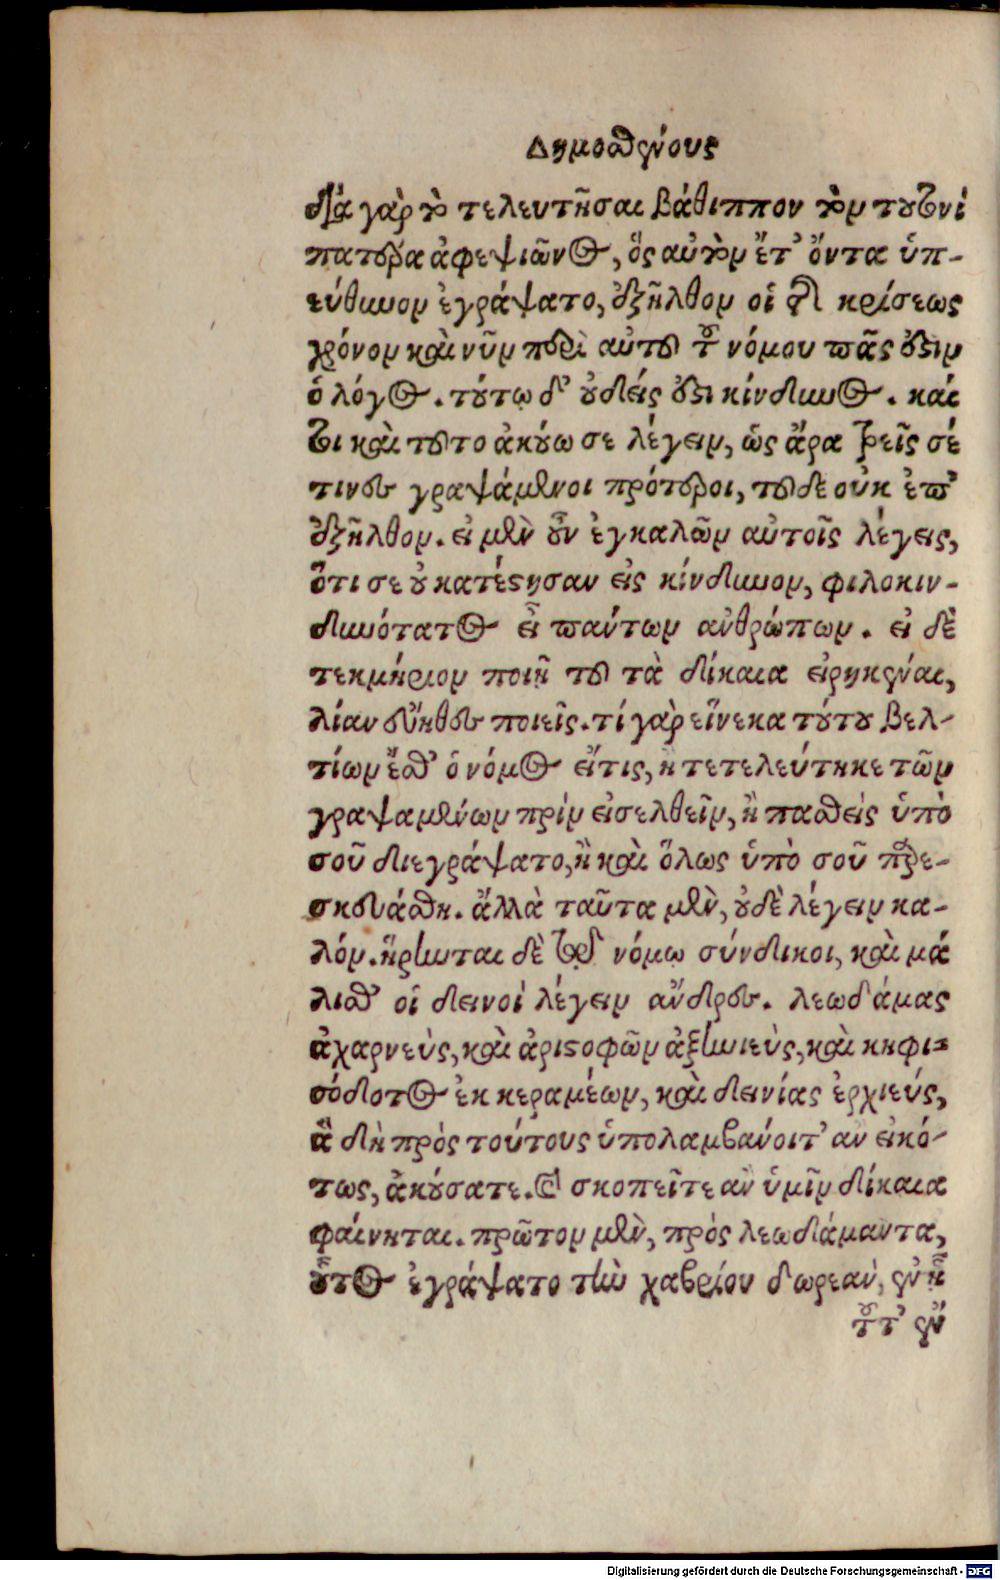 Δημοσθένους
διὰ γὰρ τὸ τελευτῆσαι βάθιππον τὸν τουτουνὶ
πατέρα ἀφεψιῶνος, ὃς αὐτὸν ἔτ' ὄντα ὑπ-
εύθυνον ἐγράψατο, ἐξῆλθον οἱ τῆς κρίσεως
χρόνον καὶ νῦν περὶ αὐτοῦ τοῦ νόμου πᾶς ἐστιν
ὁ λόγος. τούτῳ δ' οὐδείς ἐστι κίνδυνος. καί
τοι καὶ τοῦτο ἀκούω σε λέγειν, ὡς ἄρα τρεῖς σέ
τινες γραψάμενοι πρότεροι, τοῦδε οὐκ ἐπ'
ἐξῆλθον. εἰ μὲν οὖν ἐγκαλῶν αὐτοῖς λέγεις,
ὅτι σε οὐ κατέστησαν εἰς κίνδυνον, φιλοκιν-
δυνότατος εἶ πάντων ἀνθρώπων. εἰ δὲ
τεκμήριον ποιῇ τοῦ τὰ δίκαια εἰρηκέναι,
λίαν εὔηθες ποιεῖς. τί γὰρ εἵνεκα τούτου βελ-
τίων ἔσθ' ὁ νόμος εἴ τις, ἢ τετελεύτηκε τῶν
γραψαμένων πρίν εἰσελθεῖν, ἢ πεισθεὶς ὑπὸ
σοῦ διεγράψατο, ἢ καὶ ὅλως ὑπὸ σοῦ παρε-
σκευάσθη. ἀλλὰ ταῦτα μὲν, οὐδὲ λέγειν κα-
λόν. ᾕρηνται δὲ τῷ νόμῳ σύνδικοι, καὶ μά
λισθ' οἱ δεινοὶ λέγειν ἄνδρες. λεωδάμας
ἀχαρνεὺς, καὶ ἀριστοφῶν ἀζηνιεὺς, καὶ κηφι-
σόδοτος ἐκ κεραμέων, καὶ δεινίας ἐρχιεύς,
ἃ δὴ πρὸς τούτους ὑπολαμβάνοιτ' ἂν εἰκό-
τως, ἀκούσατε. καὶ σκοπεῖτε ἂν ὑμῖν δίκαια
φαίνηται. πρῶτον μὲν, πρὸς λεωδάμαντα,
οὗτος ἐγράψατο τὴν χαβρίου δωρεὰν, ἐν ᾗ
τοῦτ' ἔν
Digitalisierung gefördert durch die Deutsche Forschungsgemeinschaft - DFG